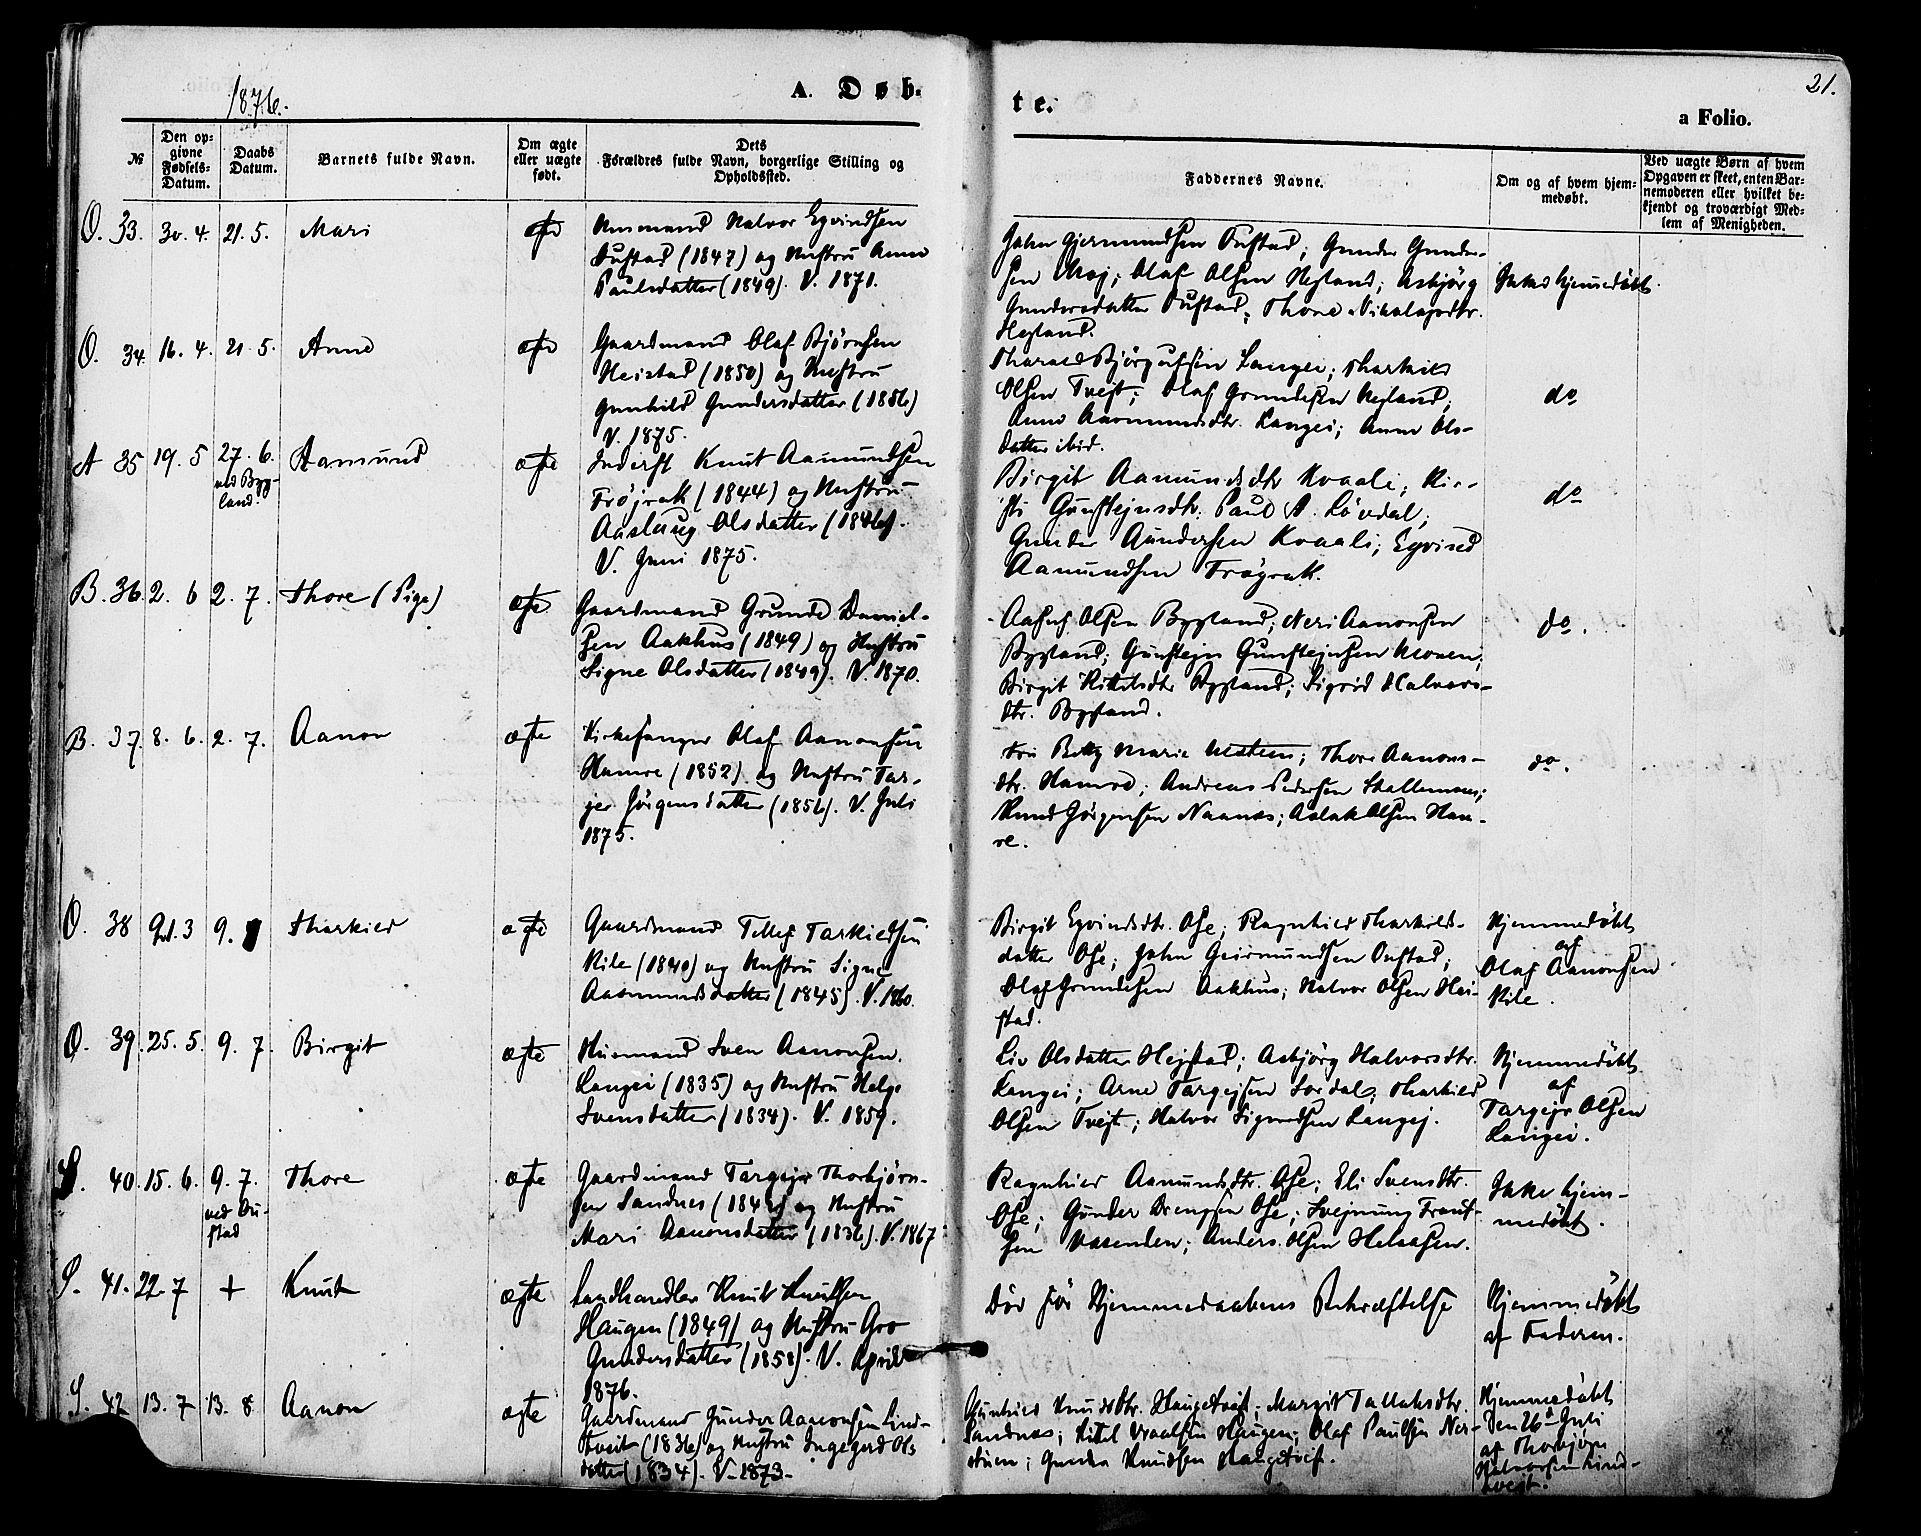 1876.
A. Døb-
te.
21.
a Folio.
№
Den op-
givne
Fødsels-
Datum.
Daabs
Datum.
Barnets fulde Navn.
Om ægte
eller uægte
født.
Dets
Forældres fulde Navn, borgerlige Stilling og
Opholdssted.
Faddernes Navne.
Om og af hvem hjem-
medøbt.
Ved uægte Børn af hvem
Opgaven er skeet, enten Bar-
nemoderen eller hvilket be-
kjendt og troværdigt Med-
lem af Menigheden.
O. 33. 30. 4. 21. 5. Mari ægte
Halvor Eyvindsen
(1847) og Hustru Anne
Paulsdatter (1849). V. 1871.
John Gjermundsen; Gunder Gunder-
sen Moj; Olaf Olsen; Asbjörg
Gundersdatter; Thone Nikolajsdtr.
Ikke hjemmedøbt.
O. 34. 16. 4. 21. 5. Anne ægte
Gaardmand Olaf Bjørnsen
Heistad (1850) og Hustru
Gunhild Gundersdatter (1856)
V. 1875.
Bjørgulfsen Langei; Tharkild
Olsen Tvejt; Olaf Grundesen;
Anne Aasmundsdtr. Langei; Anne Ols-
datter ibid.
do
A 35 19. 5 27. 6. ved Byg-
land.
Aamund ægte
Knut Aamundsen
Frøjrak (1844) og Hustru
Aaslaug Olsdatter (1846).
V. Juni 1875.
Birgit Aamundsdtr Kvaale; Kir-
sti Gunstejnsdtr. Paul A. Lövdal;
Gunder Gundersen Kvaale; Eyvind
Aamundsen Frøyrak.
do
B. 36. 2. 6 2. 7. Thore (Pige) ægte
Gaardmand Grunde Daniel-
sen Aakhus (1849) og Hustru
Signe Olsdatter (1849). V. 1870.
Olsen Bygland; Neri Aanonsen
Bygland; Gunstejn Gunstejnsen Moen;
Birgit Kittilsdtr Bygland; Sigrid Halvors-
dtr. Bygland.
do.
B. 37. 8. 6. 2. 7. Aanon ægte
Kirkesanger Olaf Aanonsen
Hamre (1852) og Hustru Tar-
jer Jörgensdatter (1856). V. Juli
1875.
Fru Betty Marie; Thore Aanons-
dtr. Hamre; Andreas Pedersen Stallemoen;
Knud Jörgensen Naanes; Aslak Olsen Ham-
re.
do.
O. 38 9. Tharkild ægte
Gaardmand Tellef Tarkildsen
Rike (1840) og Hustru Signe
Aasmundsdatter (1845). V. 1860.
Birgit Eyvindsdtr. Ose; Ragnhild Tharkilds-
datter Ose; John Geirmundsen;
Olaf Grundesen Aakhus; Halvor Olsen Hei-
stad.
Hjemmedøbt
af
Olaf Aanonsen
Rike.
O. 39. 25. 5. 9. 7. Birgit ægte
Husmand Sven Aanonsen
Langei (1835) og Hustru Helge
Svensdatter (1834). V. 1859.
Liv Olsdatter Hejstad; Asbjörg Halvorsdtr.
Langei; Arne Targejsen Lordal; Tharkild
Olsen Tvejt; Halvor Sigurdsen Langej.
Hjemmedøbt
af
Targejs Olsen
Langei.
S. 40. 15. 6. 9. 7.
ved
stad
Thore ægte
Gaardmand Targejs Thorbjørn-
sen Sandnes og Hustru
Mari Aanonsdatter (1836). V. 1867
Ragnhild Aamundsdtr. Ose; Eli Svensdtr.
Ose; Gunder Drengsen Ose; Svejnung
sen Vasenden; Anders Olsen Helaasen.
Ikke hjem-
medøbt.
S. 41. 22. 7 + Knut ægte
Landhandler Knut Knutsen
Haugen (1849) og Hustru Gro
Gundersdatter (1858). V. April
1876.
Död før Hjemmedaabens Bekræftelse
Hjemmedøbt
af Faderen.
S. 42 13. 7 13. 8 Aanon ægte
Gaardmand Gunder Aanonsen Lind-
tveit (1836) og Hustru Ingegerd Ols
datter (1834). V. 1873.
Gunhild Knudsdtr. Haugetvejt; Margit Talleksdtr.
Sandnes; Kittel Haugen; Olaf Paulsen Ner-
; Gunder Knudsen Haugetvejt.
Hjemmedøbt
den 26 Juli
af Thorbjørn
Halvorsen Lind-
tvejt.